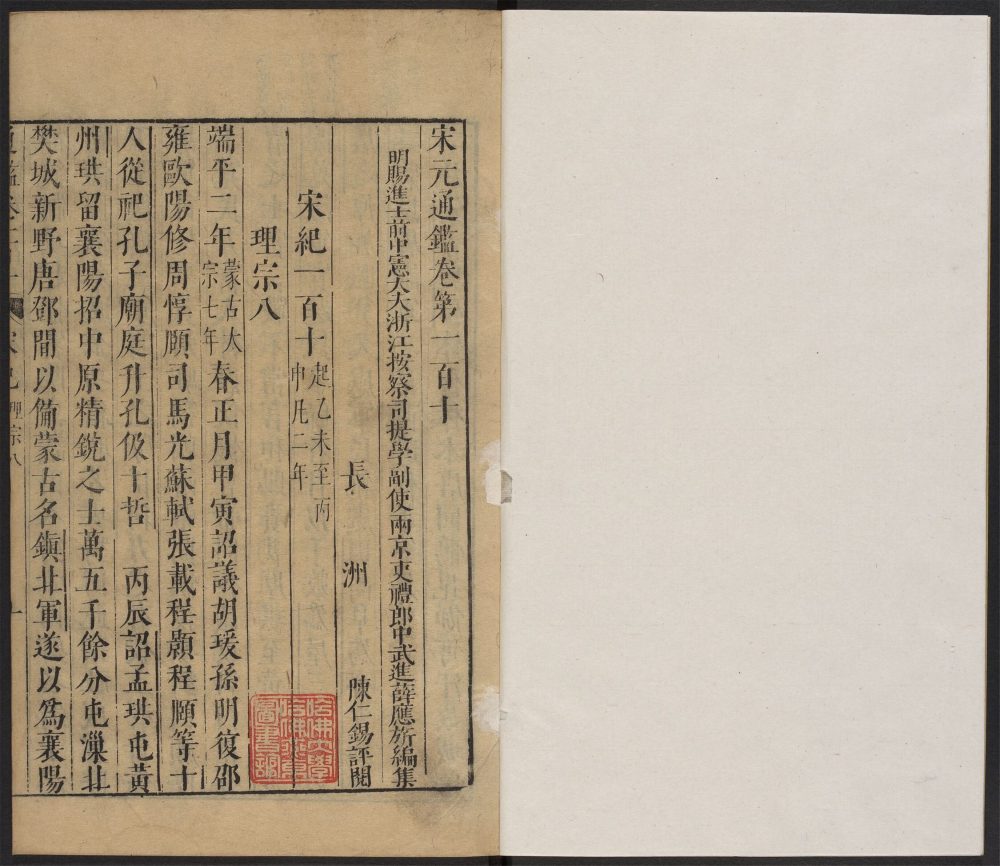 宋元通鑑卷第一百十
明賜進士前中憲大夫浙江按察司提學副使兩京吏禮郎中武進薛應旂編集
長洲陳仁錫評閱
宋紀一百十起乙未至丙申凡二年
理宗八
端平二年蒙古太宗七年春正月甲寅詔議胡瑗孫明復邵
雍歐陽修周惇頤司馬光蘇軾張載程顥程頤等十
人從祀孔子廟庭升孔伋十哲 丙辰詔孟珙屯黃
州珙留襄陽招中原精銳之士萬五千餘分屯漅北
樊城新野唐鄧間以備蒙古名鎮北軍遂以爲襄陽
理宗八
一
哈佛大學哈佛燕京圖書館